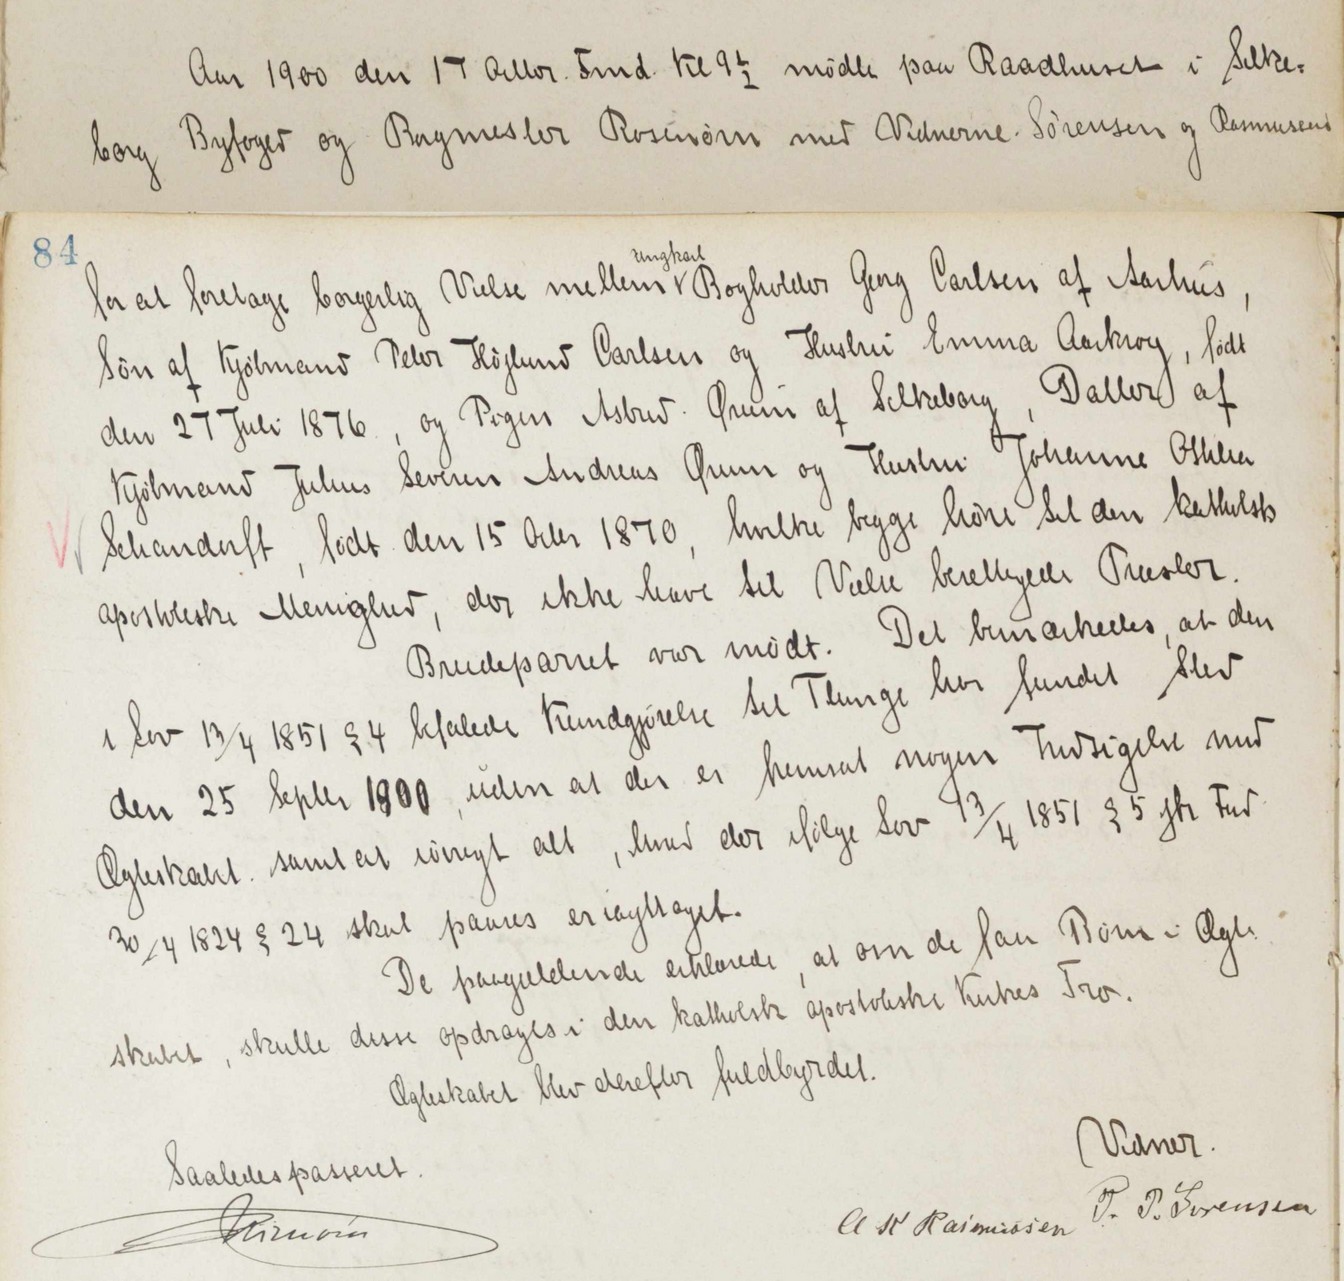 Aar 1900 den 17 Octbr. Fmd. Kl 9 1/2 mødte paa Raadhuset i Silke-
borg Byfoged og Borgmester Rosenørn med Vidnerne Sörensen og Rasmussen
84
ungkarl
for at foretage borgerlig Vielse mellem Bogholder Georg Carlsen af Aarhus,
Sön af Kjöbmand Peter Höjlund Carlsen og Hustru Emma Aackrog, födt
den 27 Juli 1876, og Pigen Astrid Ørum af Silkeborg, Datter af
Kjöbmand Julius Severin Andreas Ørum og Hustru Johanne Othilia
Schandorff, födt den 15 Octbr 1870, hvilke begge höre til den katholsk
apostoliske Menighed, der ikke have til Vielse berettigede Præster.
Brudeparret var mödt. Det bemærkedes, at den
i Lov 13/4 1851 § 4 befalede Kundgjörelse til Thinge har fundet Sted
den 25 Septbr 1900, uden at der er fremsat nogen Indsigelse mod
Ægteskabet samt at iövrigt alt, hvad der ifölge Lov 13/4 1851 § 5 jfr Frd
30/4 1824 § 24 skal paases er iagttaget.
De paagjældende erklærede, at om de faa Börn i Ægte-
skabet, skulle disse opdrages i den katholsk apostoliske Kirkes Tro.
Ægteskabet blev derefter fuldbyrdet.
Vidner.
Saaledes passeret.
Rosenörn
A K Rasmussen P. P. Sorensen